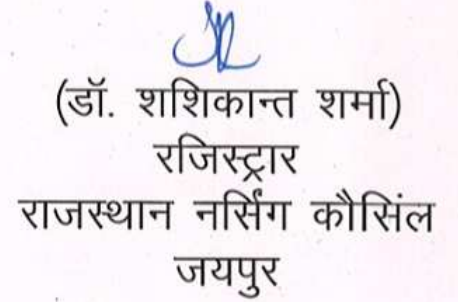 (डॉ. शशिकान्त शर्मा)
रजिस्ट्रार
राजस्थान नर्सिंग कौसिंल
जयपुर